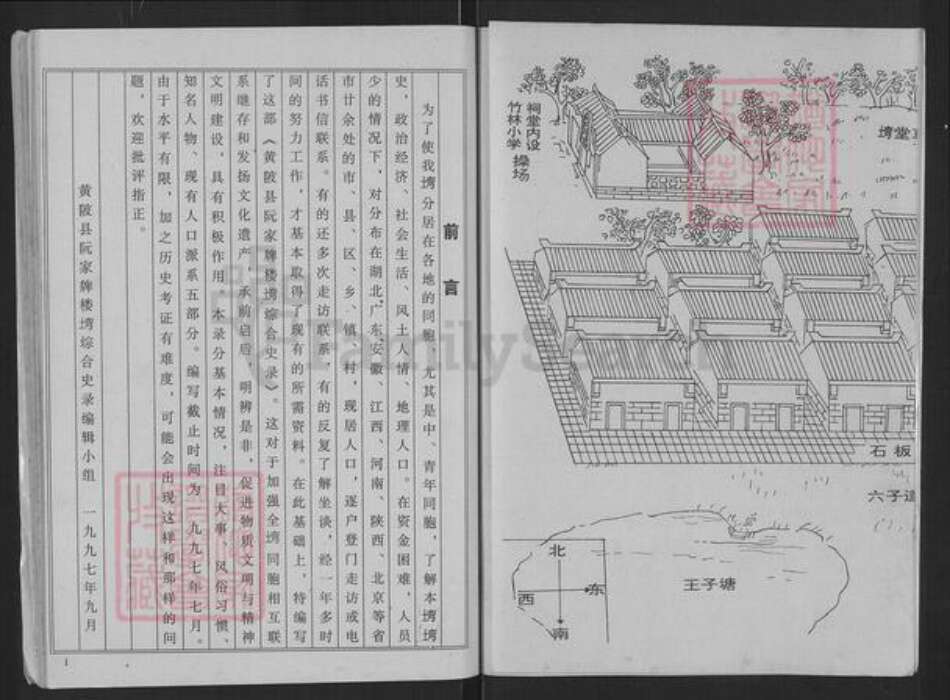 前言
为了使我塆分居在各地的同胞，尤其是中、青年同胞，了解本塆塆
史，政治经济、社会生活、风土人情、地理人口。在资金困难，人员
少的情况下，对分布在湖北，广东，安徽、江西、河南、陕西、北京等省
市廿余处的市、县、区、乡、镇、村，现居人口，逐户登门走访或电
话书信联系。有的还多次走访联系，有的反复了解坐谈，经一年多时
间的努力工作，才基本取得了现有的所需资料。在此基础上，特编写
了这部《黄陂县阮家牌楼塆综合史录》。这对于加强全塆同胞相互联
系继存和发扬文化遗产，承前启后，明辨是非，促进物质文明与精神
文明建设，具有积极作用。本录分基本情况，注目大事、风俗习惯、
知名人物、现有人口派系五部分。编写截止时间为一九九七年七月。
由于水平有限，加之历史考证有难度，可能会出现这样和那样的问
题，欢迎批评指正。
黄陂县阮家牌楼塆综合史录编辑小组 一九九七年九月
1
祠堂内设
竹林小学
操场
塆堂
石板
六子
王子塘
北
西
东
南
FamilySearch